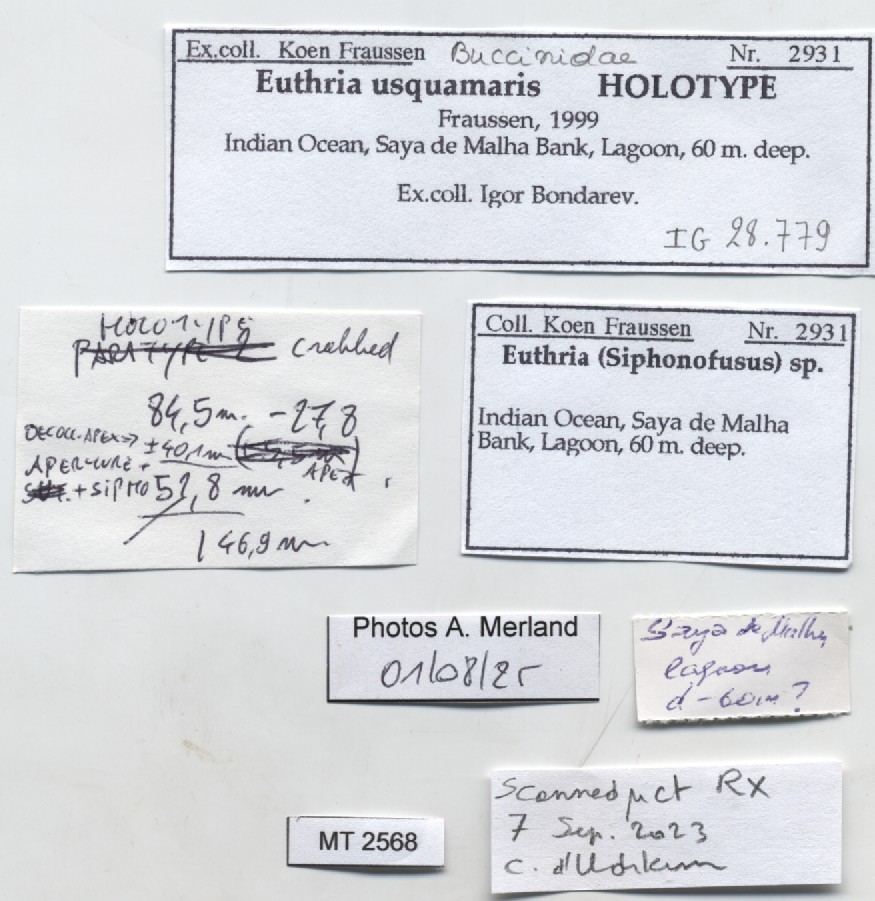 Ex.coll. Koen Fraussen Buccinidae Nr. 2931
Euthria usquamaris HOLOTYPE
Fraussen, 1999
Indian Ocean, Saya de Malha Bank, Lagoon, 60 m. deep.
Ex.coll. Igor Bondarev.
IG 28.779
HOLOTYPE
PARATYPE 2 crabbed
84,5 m. - 27,8
DECOLL. APEX →
± 40,1 m
APEX
APERTURE +
+ SIPHO 51,8 mm
146,9 mm
Coll. Koen Fraussen Nr. 2931
Euthria (Siphonofusus) sp.
Indian Ocean, Saya de Malha
Bank, Lagoon, 60 m. deep.
Photos A. Merland
01/08/25
Saya de Malha
lagoon
d - 60m ?
Scanned µct RX
7 Sep. 2023
C. d'Udekem
MT 2568